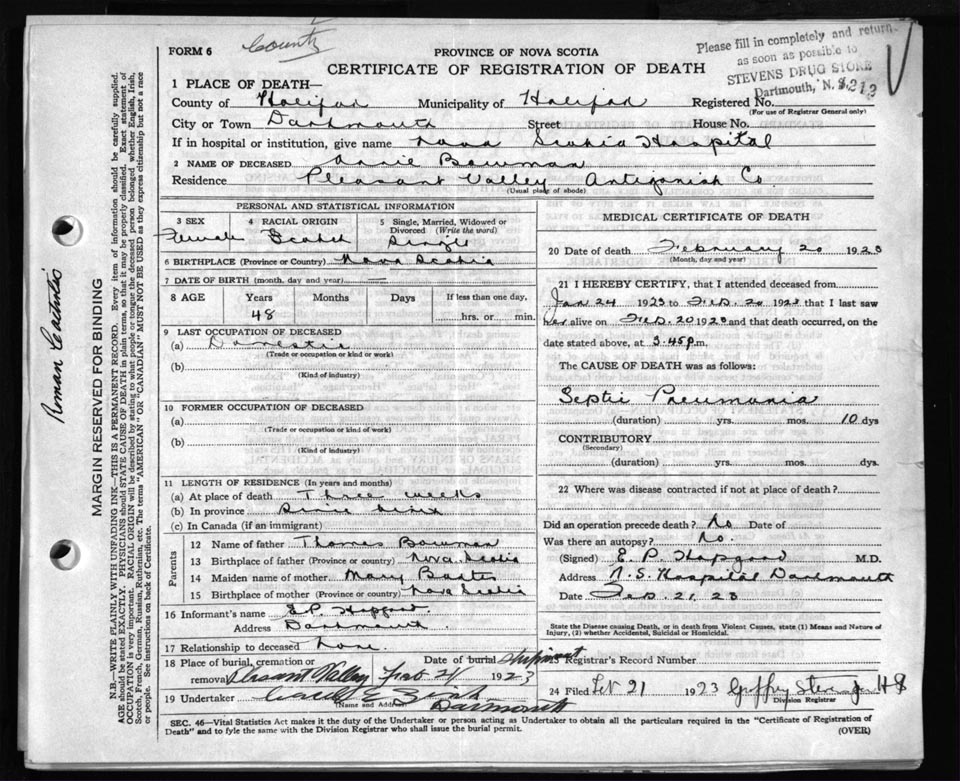 County
FORM 6
PROVINCE OF NOVA SCOTIA
CERTIFICATE OF REGISTRATION OF DEATH
Please fill in completely and return
as soon as possible to
STEVENS DRUG STORE
Dartmouth, N.S.
1 PLACE OF DEATH—
County of Halifax Municipality of Halifax Registered No.
(For use of Registrar General only)
City or Town Dartmouth Street House No.
If in hospital or institution, give name Nova Scotia Hospital
2 NAME OF DECEASED Annie Bowman
Residence Pleasant Valley Antigonish Co
(Usual place of abode)
PERSONAL AND STATISTICAL INFORMATION
3 SEX Female
4 RACIAL ORIGIN Scotch
5 Single, Married, Widowed or Divorced (Write the word) Single
6 BIRTHPLACE (Province or Country) Nova Scotia
7 DATE OF BIRTH (month, day and year)
8 AGE Years Months Days If less than one day,
48 hrs. or min.
9 LAST OCCUPATION OF DECEASED
(a) Domestic
(Trade or occupation or kind or work)
(b)
(Kind of industry)
10 FORMER OCCUPATION OF DECEASED
(a)
(Trade or occupation or kind of work)
(b)
(Kind of industry)
11 LENGTH OF RESIDENCE (In years and months)
(a) At place of death Three weeks
(b) In province Since birth
(c) In Canada (if an immigrant)
Parents
12 Name of father Thomas Bowman
13 Birthplace of father (Province or country) Nova Scotia
14 Maiden name of mother Mary
15 Birthplace of mother (Province or country) Nova Scotia
16 Informant's name E.P. Hapgood
Address Dartmouth
17 Relationship to deceased None
18 Place of burial, cremation or Date of burial Shipment
removal Pleasant Valley Feb 21 1923
19 Undertaker
(Name and Address) Dartmouth
MEDICAL CERTIFICATE OF DEATH
20 Date of death February 20 1923
(Month, day and year)
21 I HEREBY CERTIFY, that I attended deceased from
Jan 24 1923 to Feb. 20 1923 that I last saw
her alive on Feb. 20 1923 and that death occurred, on the
date stated above, at 3.45 p.m.
The CAUSE OF DEATH was as follows:
Septic Pneumonia
(duration) yrs. mos. 10 dys
CONTRIBUTORY
(Secondary)
(duration) yrs. mos. dys.
22 Where was disease contracted if not at place of death?
Did an operation precede death? No Date of
Was there an autopsy? No.
(Signed) E. P. Hapgood M.D.
Address N. S. Hospital Dartmouth
Date Feb. 21, 23
State the Disease causing Death, or in death from Violent Causes, state (1) Means and Nature of
Injury, (2) whether Accidental, Suicidal or Homicidal.
23 Registrar's Record Number
24 Filed Feb 21 1923
Division Registrar
SEC. 46—Vital Statistics Act makes it the duty of the Undertaker or person acting as Undertaker to obtain all the particulars required in the "Certificate of Registration of
Death" and to fyle the same with the Division Registrar who shall issue the burial permit. (OVER)
Roman Catholic
MARGIN RESERVED FOR BINDING
N.B.—WRITE PLAINLY WITH UNFADING INK—THIS IS A PERMANENT RECORD. Every item of information should be carefully supplied.
AGE should be stated EXACTLY. PHYSICIANS should STATE CAUSE OF DEATH in plain terms, so that it may be properly classified. Exact statement of
OCCUPATION is very important. RACIAL ORIGIN will be described by stating to what people or tongue the deceased person belonged whether English, Irish,
Scotch, French, German, Russian, Ruthenian, etc. The terms "AMERICAN" OR "CANADIAN" MUST NOT BE USED as they express citizenship but not a race
or people. See instructions on back of Certificate.